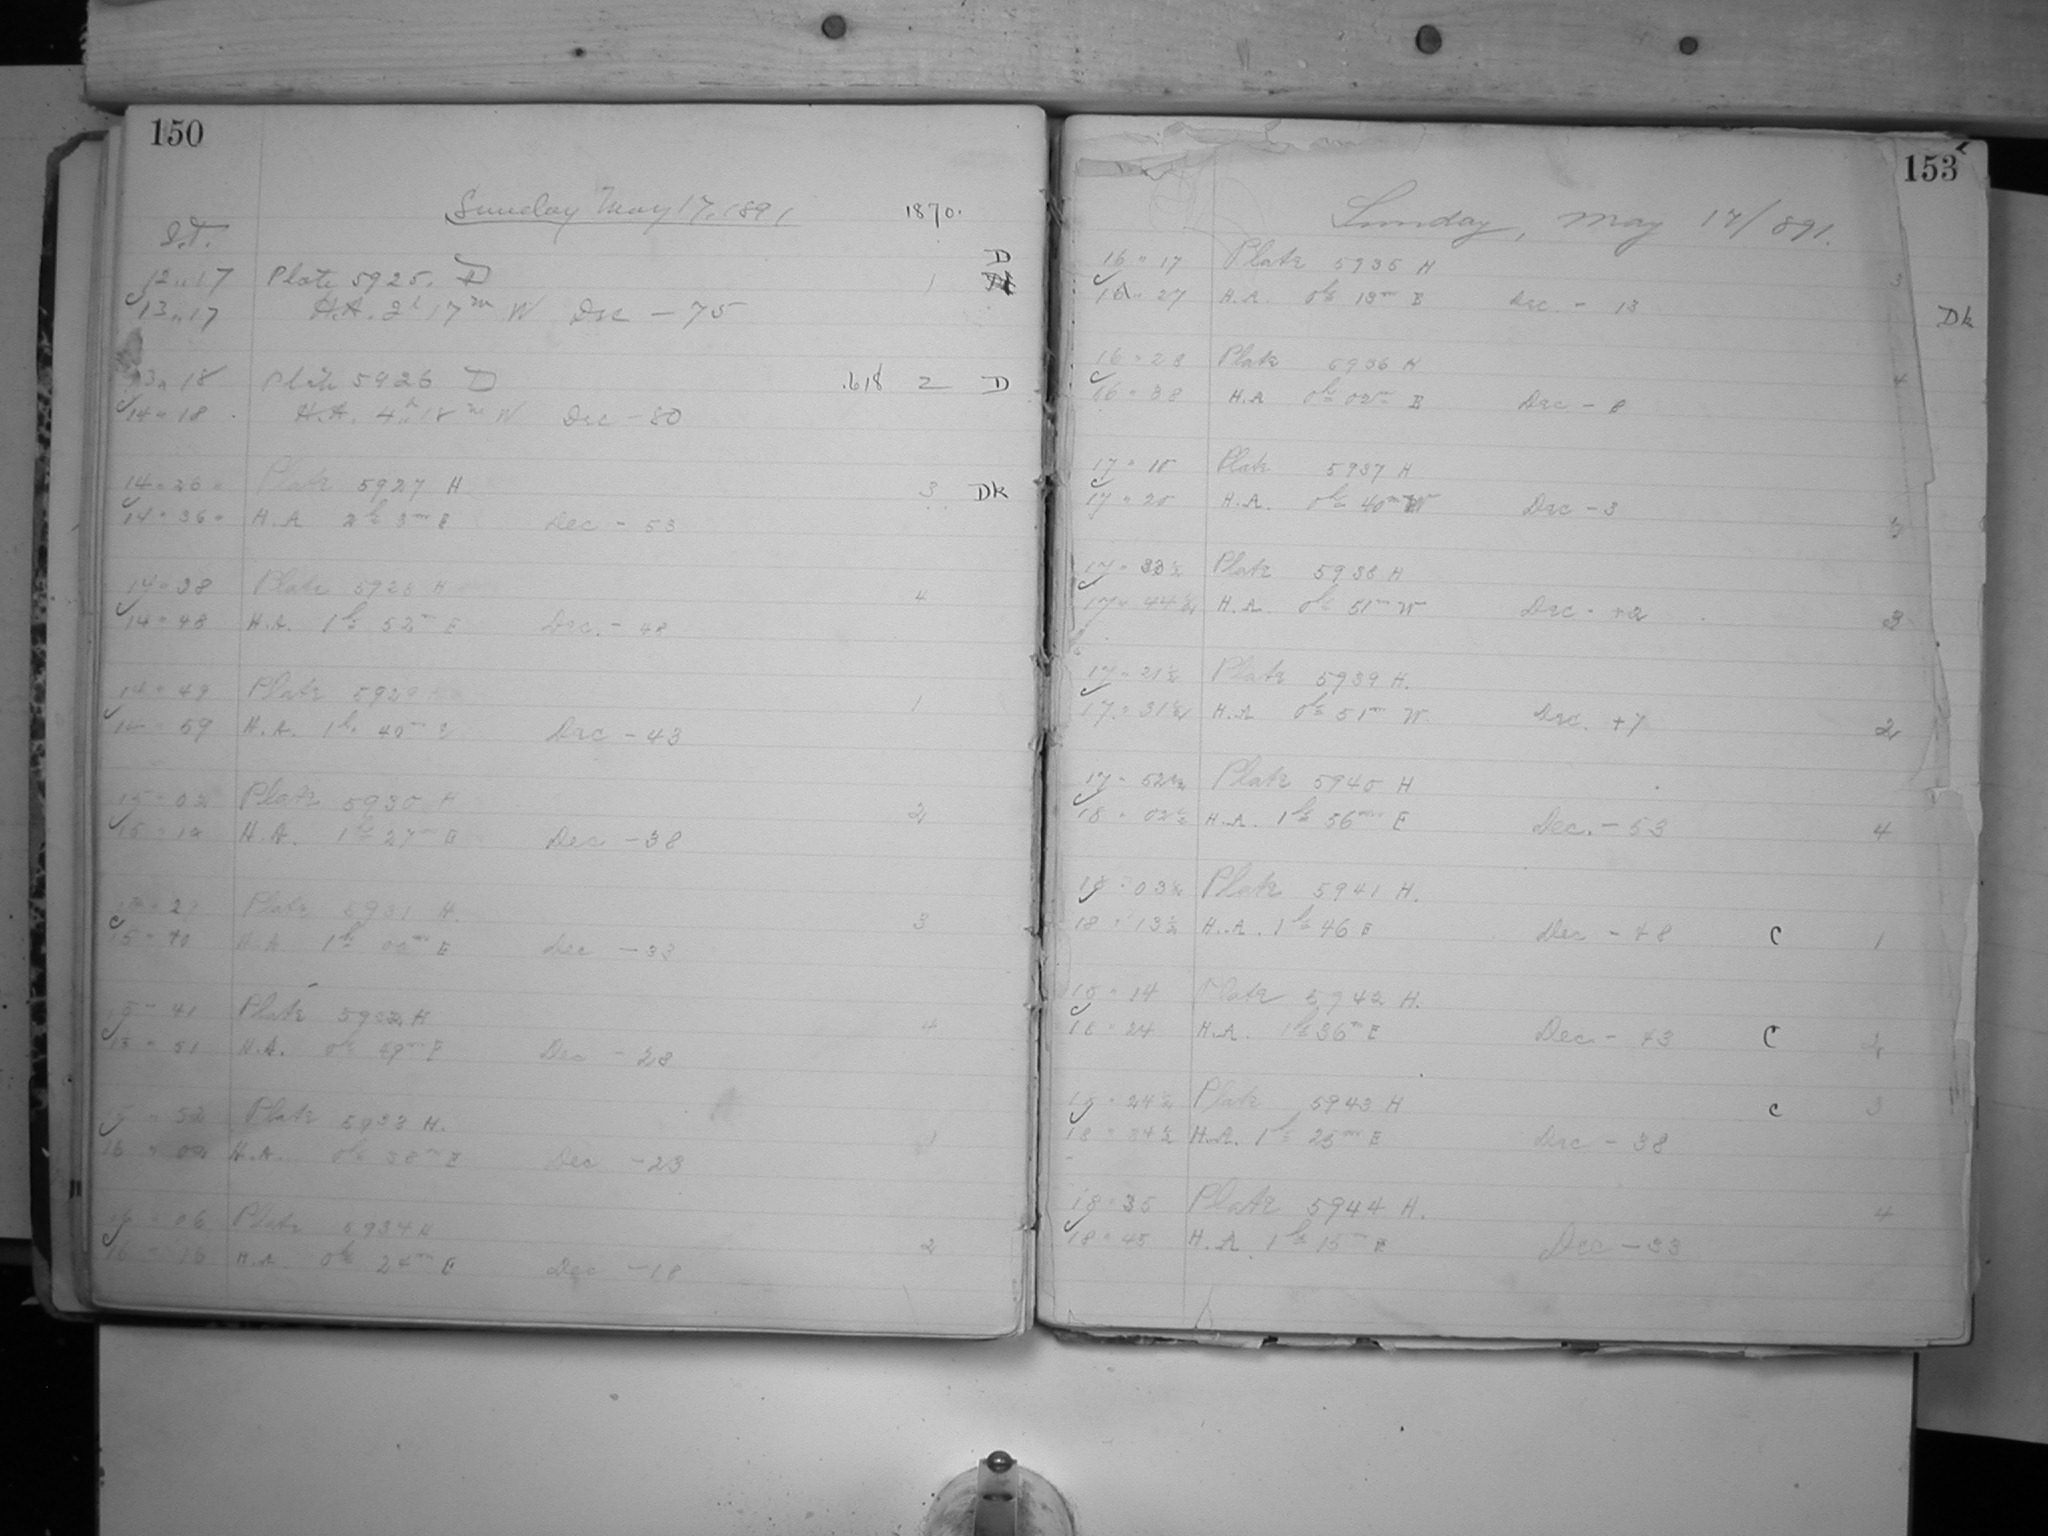 150
Sunday May 17, 1891 1870.
S.T.
D
12 " 17 Plate 5925. D 1
13 " 17 H.A. 2h 17m W Dec - 75
13 " 18 Plate 5926 D .618 2 D
14 " 18 H.A. 4h 18m W Dec - 80
14 " 26 " Plate 5927 H 3 Dk
14 " 36 " H.A 2h 3m E Dec - 53
14 " 38 Plate 5928 H 4
14 " 48 H.A. 1h 52m E Dec. - 48
14 " 49 Plate 5929 H 1
14 " 59 H.A. 1h 40m E Dec - 43
15 " 02 Plate 5930 H 2
15 " 12 H.A. 1h 27m E Dec - 38
Plate 5931 H. 3
15 " 40 H.A. 1h 00m E Dec - 33
15 " 41 Plate 5932 H 4
15 " 51 H.A. 0h 49m E Dec - 28
15 " 52 Plate 5933 H.
16 " 02 H.A. 0h 38m E Dec - 23
16 " 06 Plate 5934 H
16 " 16 H.A. 0h 24m E Dec - 18 2
153
Sunday, May 17/891.
16 " 17 Plate 5935 H 3
16 " 27 H.A. 0h 13m E Dec. - 13 Dk
16 " 28 Plate 5936 H 4
16 " 38 H.A 0h 02m E Dec - 8
17 " 10 Plate 5937 H
17 " 20 H.A. 0h 40m W Dec - 3
17 " 33½ Plate 5938 H
17 " 44½ H.A. 0h 51m W Dec - +2 3
17 " 21½ Plate 5939 H.
17 " 31½ H.A 0h 51m W. Dec. +7 2
17 " 52½ Plate 5940 H
18 " 02½ H.A. 1h 56m E Dec. - 53 4
18 " 03½ Plate 5941 H.
18 " 13½ H.A. 1h 46 E Dec - 48 C 1
18 " 14 Plate 5942 H.
18 " 24 H.A. 1h 36m E Dec - 43 C 2
18 " 24½ Plate 5943 H C 3
18 " 34½ H.A. 1h 25m E Dec - 38
18 " 35 Plate 5944 H. 4
18 " 45 H.A. 1h 15m E Dec - 33